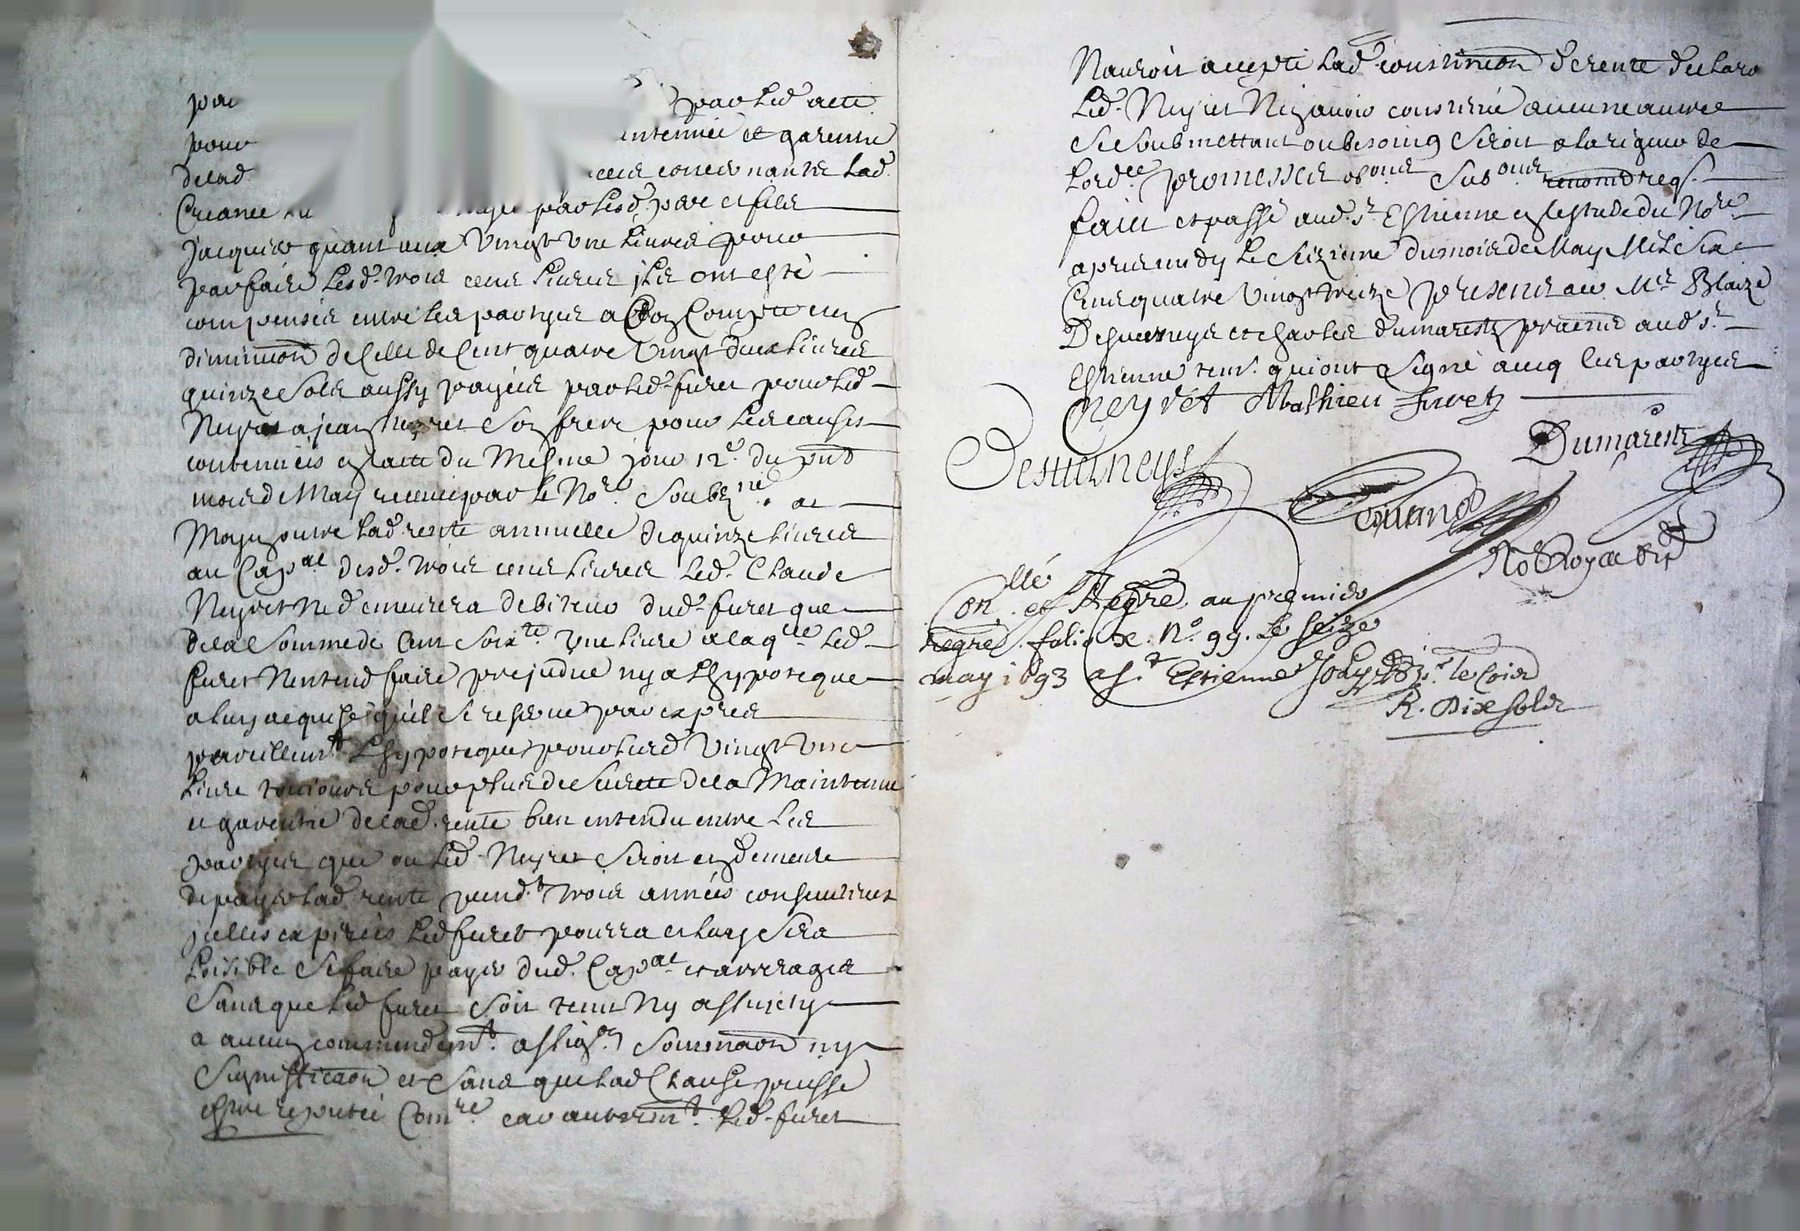 par led acte
pour intenniee et garentie
delad concernantes lad
Creance par lesd pere et filz
Jacquier quant aux vingt une livres pour
parfaire lesd trois cens livres jlz ont esté
compensée entre les partyes a bon compte en
diminuon de celle de Cent quatre vingt deux livres
quinze solz aussy payées par led furet pour led
Neyret a jean Neyret son frere pour les causes
contenuës en lacte du mesme jour 12e du pnt
mois de May receu par le Nore soubzné et
Moyen outre lad rente annuelle de quinze livres
au Capal desd trois cens livres led Claude
Neyret ne demeurera debiteur dud furet que
de la somme de Cent soixte une livre a laqle led
furet n'entend faire prejudice ny a L'hypoteque
a luy acquise qu'il se reserve par expres
pareillemt L'hypoteque pour lesd vingt une
livre toujours pour plus de surette de la Maintenue
et garentie delad rente bien entendu entre les
partyes que ou led Neyret seroit en demeure
de payer lad rente pendt trois années consecutives
jcelles expirées led furet pourra et luy sera
loisible se faire payer dud Capal et arrerages
sans que led furet soit tenu ny assujety
a aucun commendemt assigon sommaon ny
signifficaon et sans que lad Clause puisse
estre reputée Comre car autremt led furet
N'auroit accepté lad constituon de rente declare
led Neyret N'y avoir constitué aucune autre
se soubmettant ou besoing seroit a la rigueur de
lordce promesses obons subons renonons reqs
faict et passé aud St Estienne en lestude du Nore
apres midy le seizieme du mois de May Mil six
Cens quatre vingt treize presens a ce Mre Blaize
Desverneys et charles dumarestz praciens aud St
Estienne tesm. qui ont signé avec les partyes
Neyret Mathieu furetz
Desverneys Dumarestz
No Royal
Conllé et Regré au premier
regre folio x. No 99. Le seize
may 1693 a St Estienne
R. Dix solz